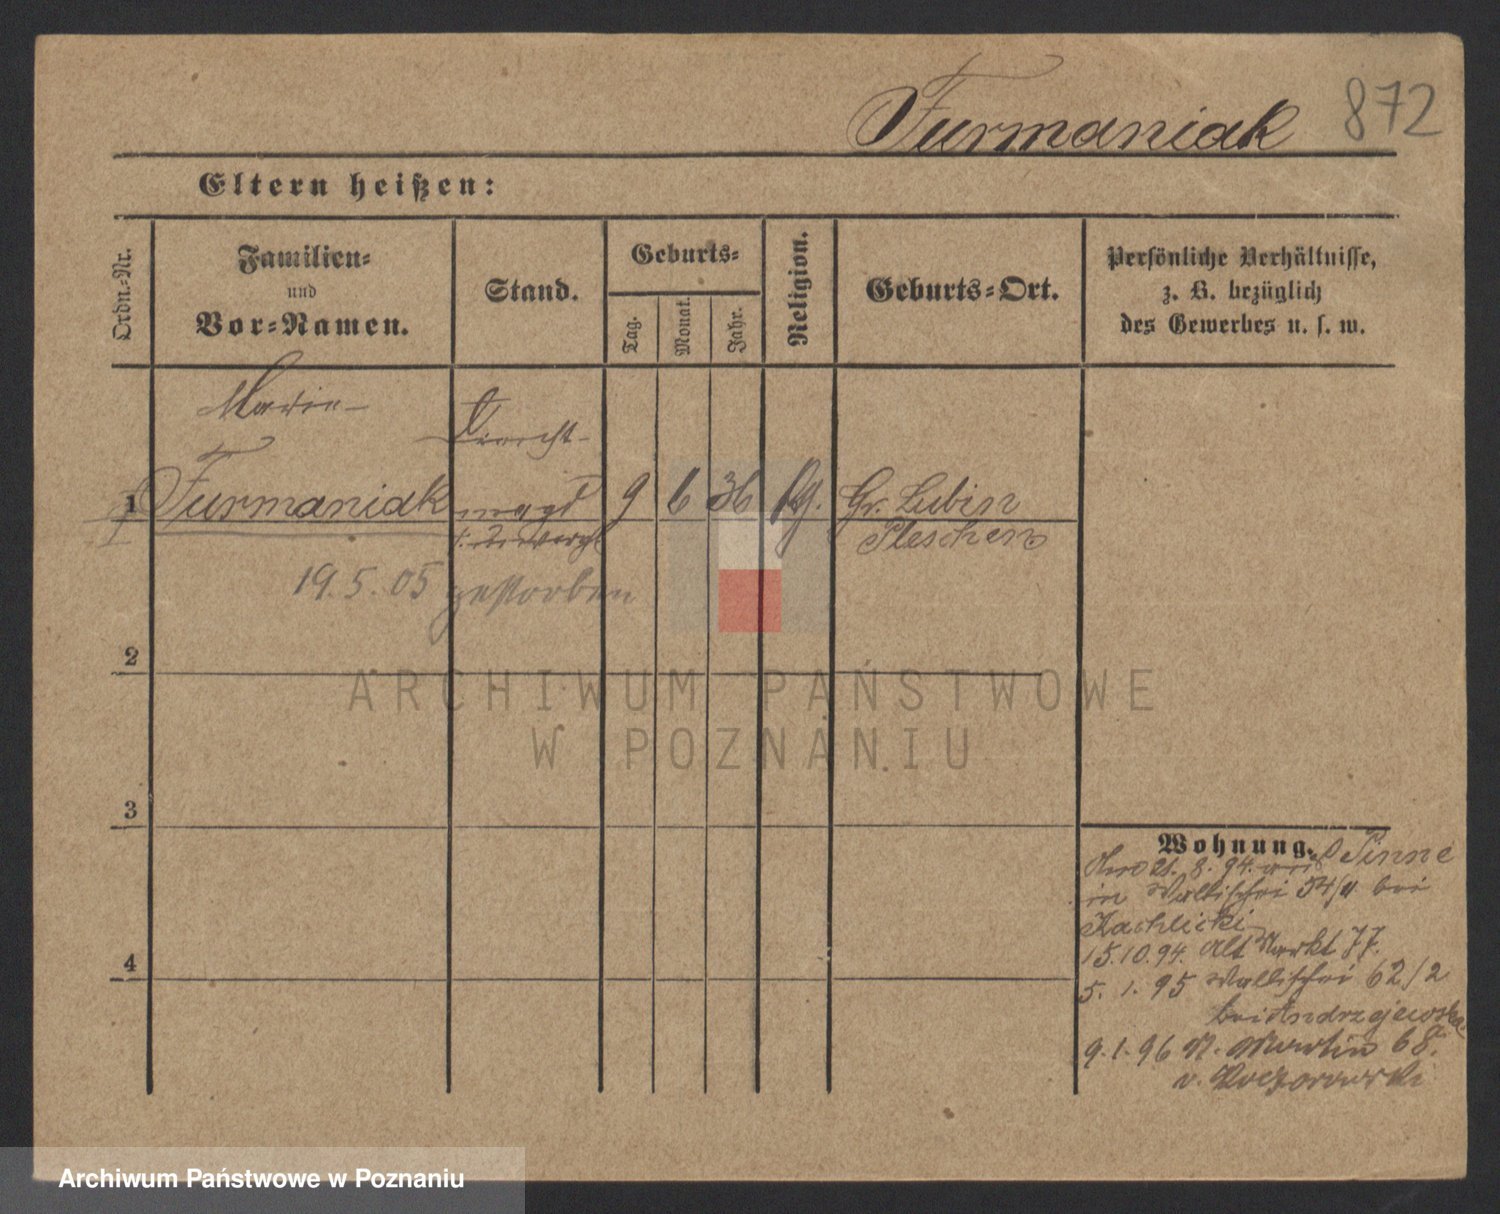 Furmaniak 872
Eltern heißen:
Ordn.-Nr.
Familien-
und
Vor-Namen.
Stand.
Geburts-
Tag.
Monat.
Jahr.
Religion.
Geburts-Ort.
Persönliche Verhältnisse,
z. B. bezüglich
des Gewerbes u. s. w.
Marie
1 Furmaniak magd 9 6 36 Gr. Lubin
Pleschen
19. 5. 05 gestorben
2
3
4
Wohnung. Pinne
21. 8. 94.
in Wallischei 54/4 bei
Kachlicki
15. 10. 94. Alt Markt 77.
5. 1. 95 Wallischei 62/2
bei Andrzejewska
9. 1. 96 St. Martin 68.
v.
ARCHIWUM PAŃSTWOWE
W POZNANIU
Archiwum Państwowe w Poznaniu